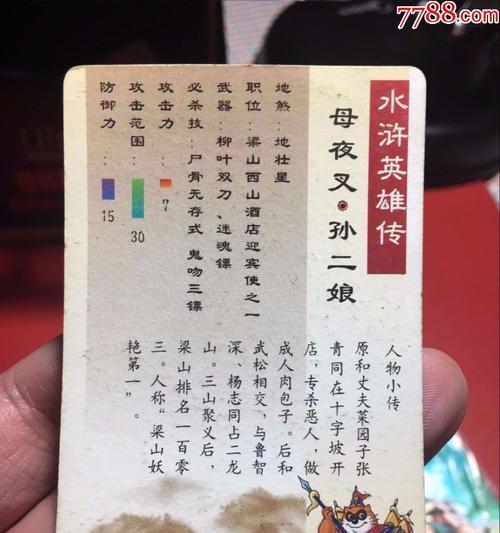 7788.com
水浒英雄传
母夜叉·孙二娘
地煞：地壮星
职位：梁山西山酒店迎宾使之一
武器：柳叶双刀、迷魂镖
必杀技：尸骨无存式 鬼吻三镖
攻击力：7
攻击范围：30
防御力：15
人物小传
原和丈夫菜园子张
青同在十字坡开
店，专杀恶人，做
成人肉包子。后和
武松相交，与鲁智
深、杨志同占二龙
山。三山聚义后，
梁山排名一百零
三。人称“梁山妖
艳第一”。